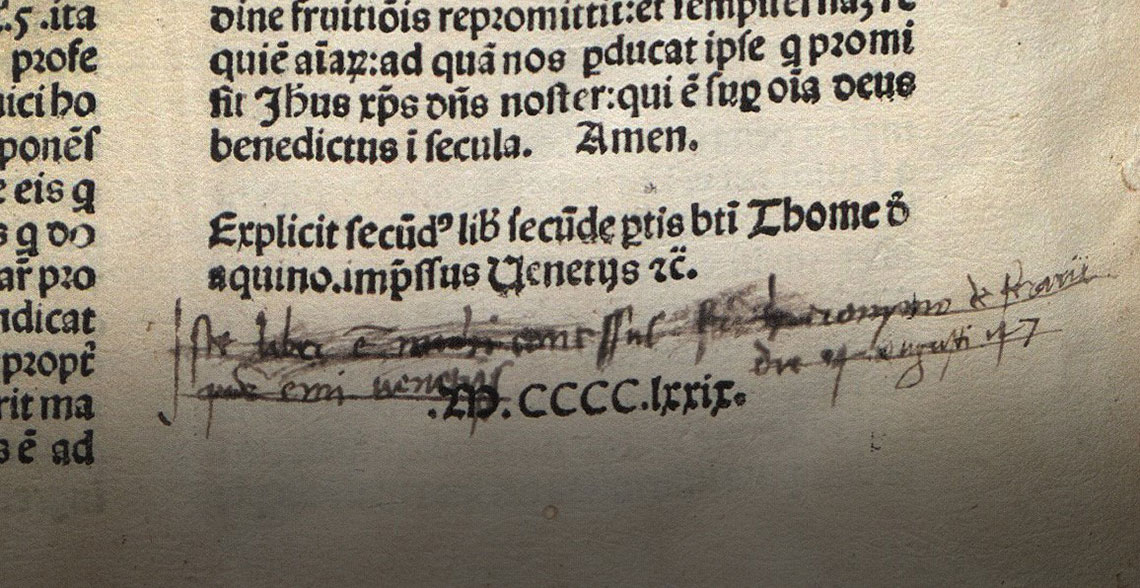 C.5.ita
profe
uici ho
ponēſ
e eis q
s q do
ar̄ pro
ndicat
propt̄
rit ma
s ē ad
dine fruitiōis repromittit:et
quiē aīaꝝ:ad quā nos ꝑducat ipſe q promi
ſit Jh̄us xp̄s dn̄s noſter:qui ē ſuꝑ oīa deus
benedictus ī ſecula. Amen.
Explicit ſecūdꝰ lib̄ ſecūde ꝑtis btī Thome d̄
aquino.imp̄ſſus Uenetijs ⁊c̄.
Iste liber ē
die augusti
quē emi venetijs
.M.CCCC.lxxix.